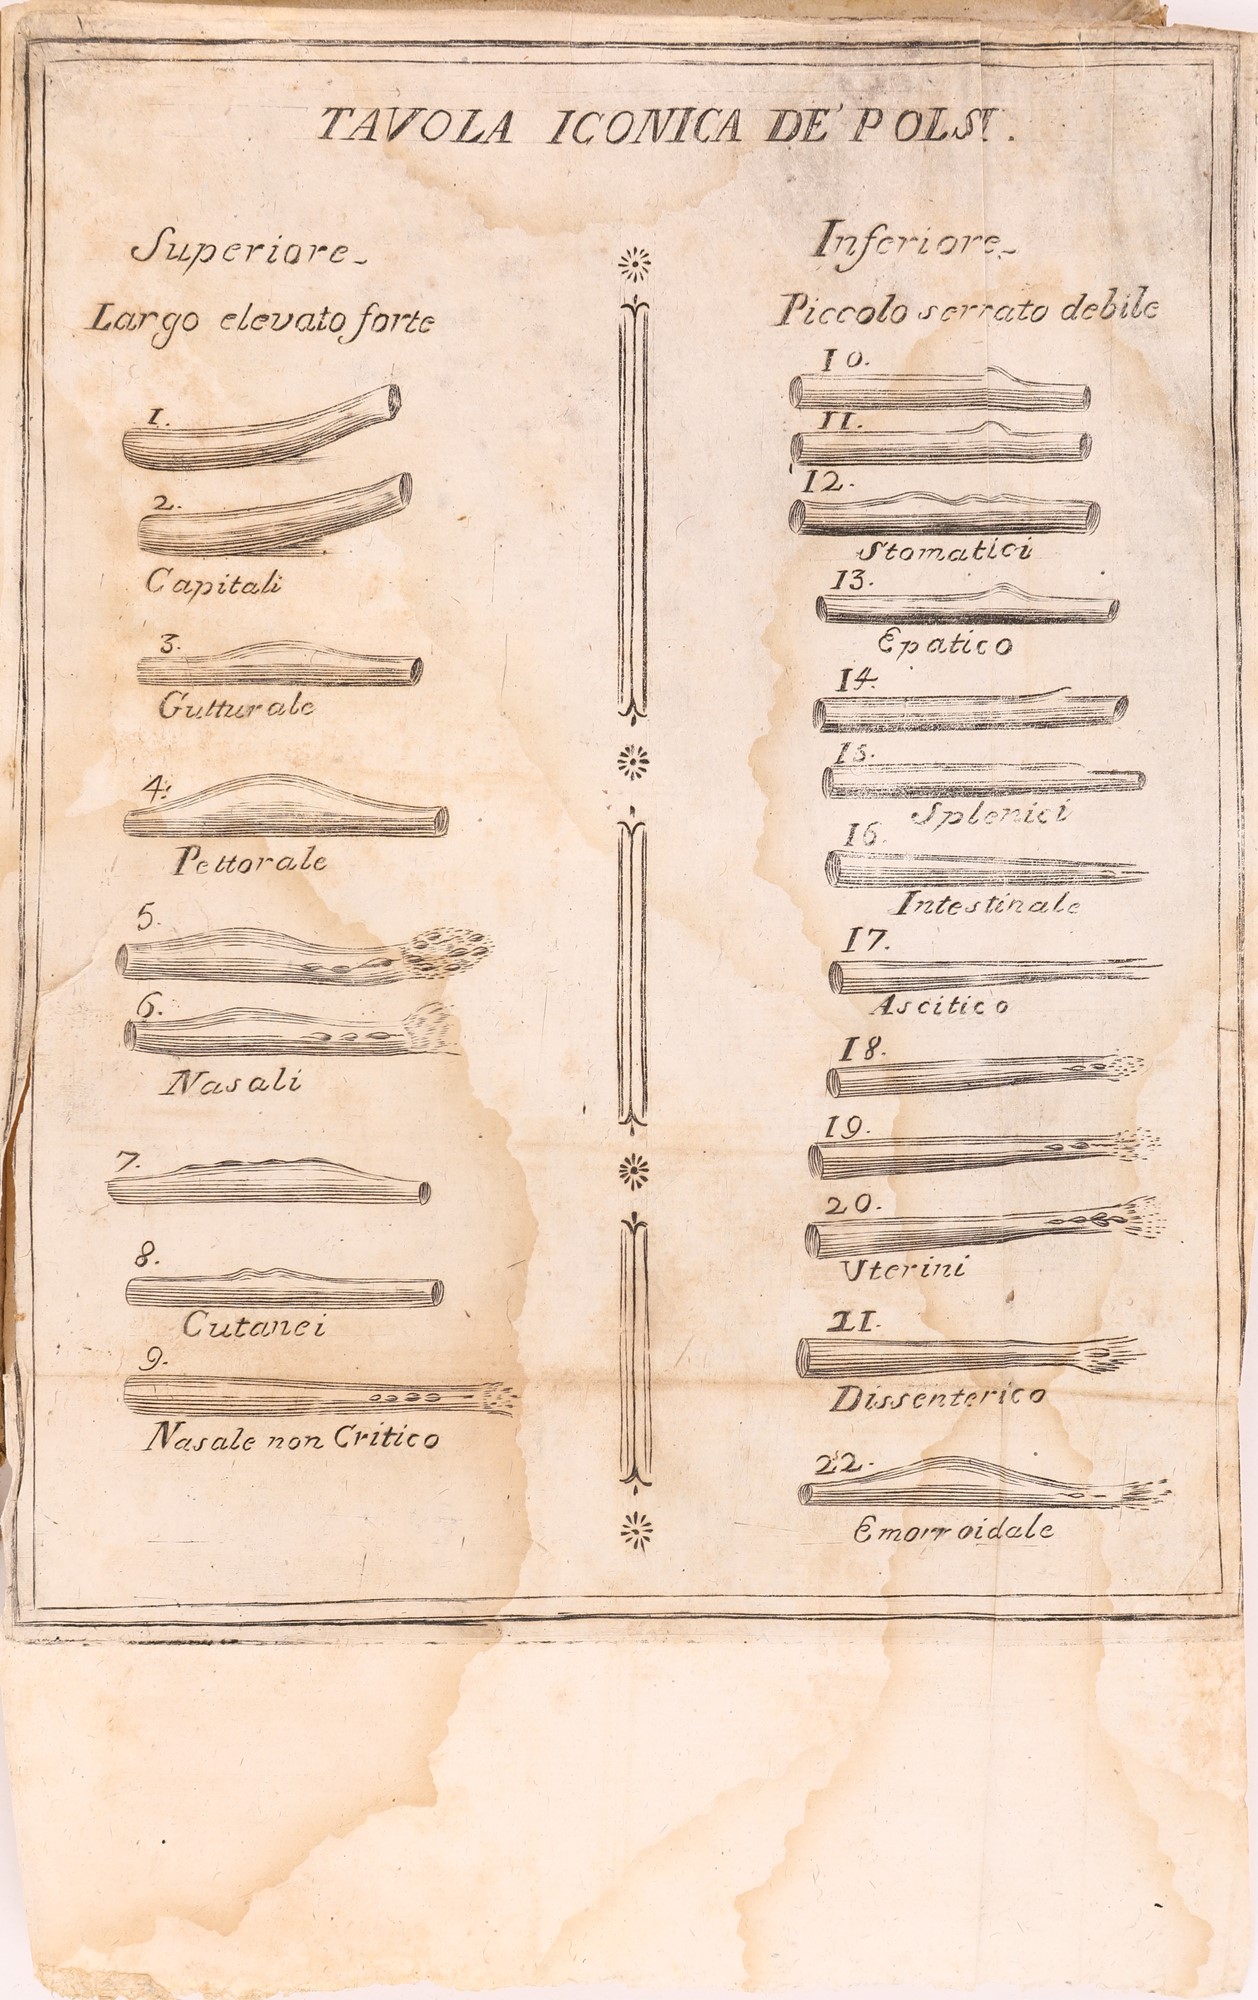 TAVOLA ICONICA DE' POLSI.
Superiore
Largo elevato forte
1.
2.
Capitali
3.
Gutturale
4.
Pettorale
5.
6.
Nasali
7.
8.
Cutanei
9.
Nasale non Critico
Inferiore
Piccolo serrato debile
10.
11.
12.
Stomatici
13.
Epatico
14.
15.
Splenici
16.
Intestinale
17.
Ascitico
18.
19.
20.
Uterini
21.
Dissenterico
22.
Emorroidale